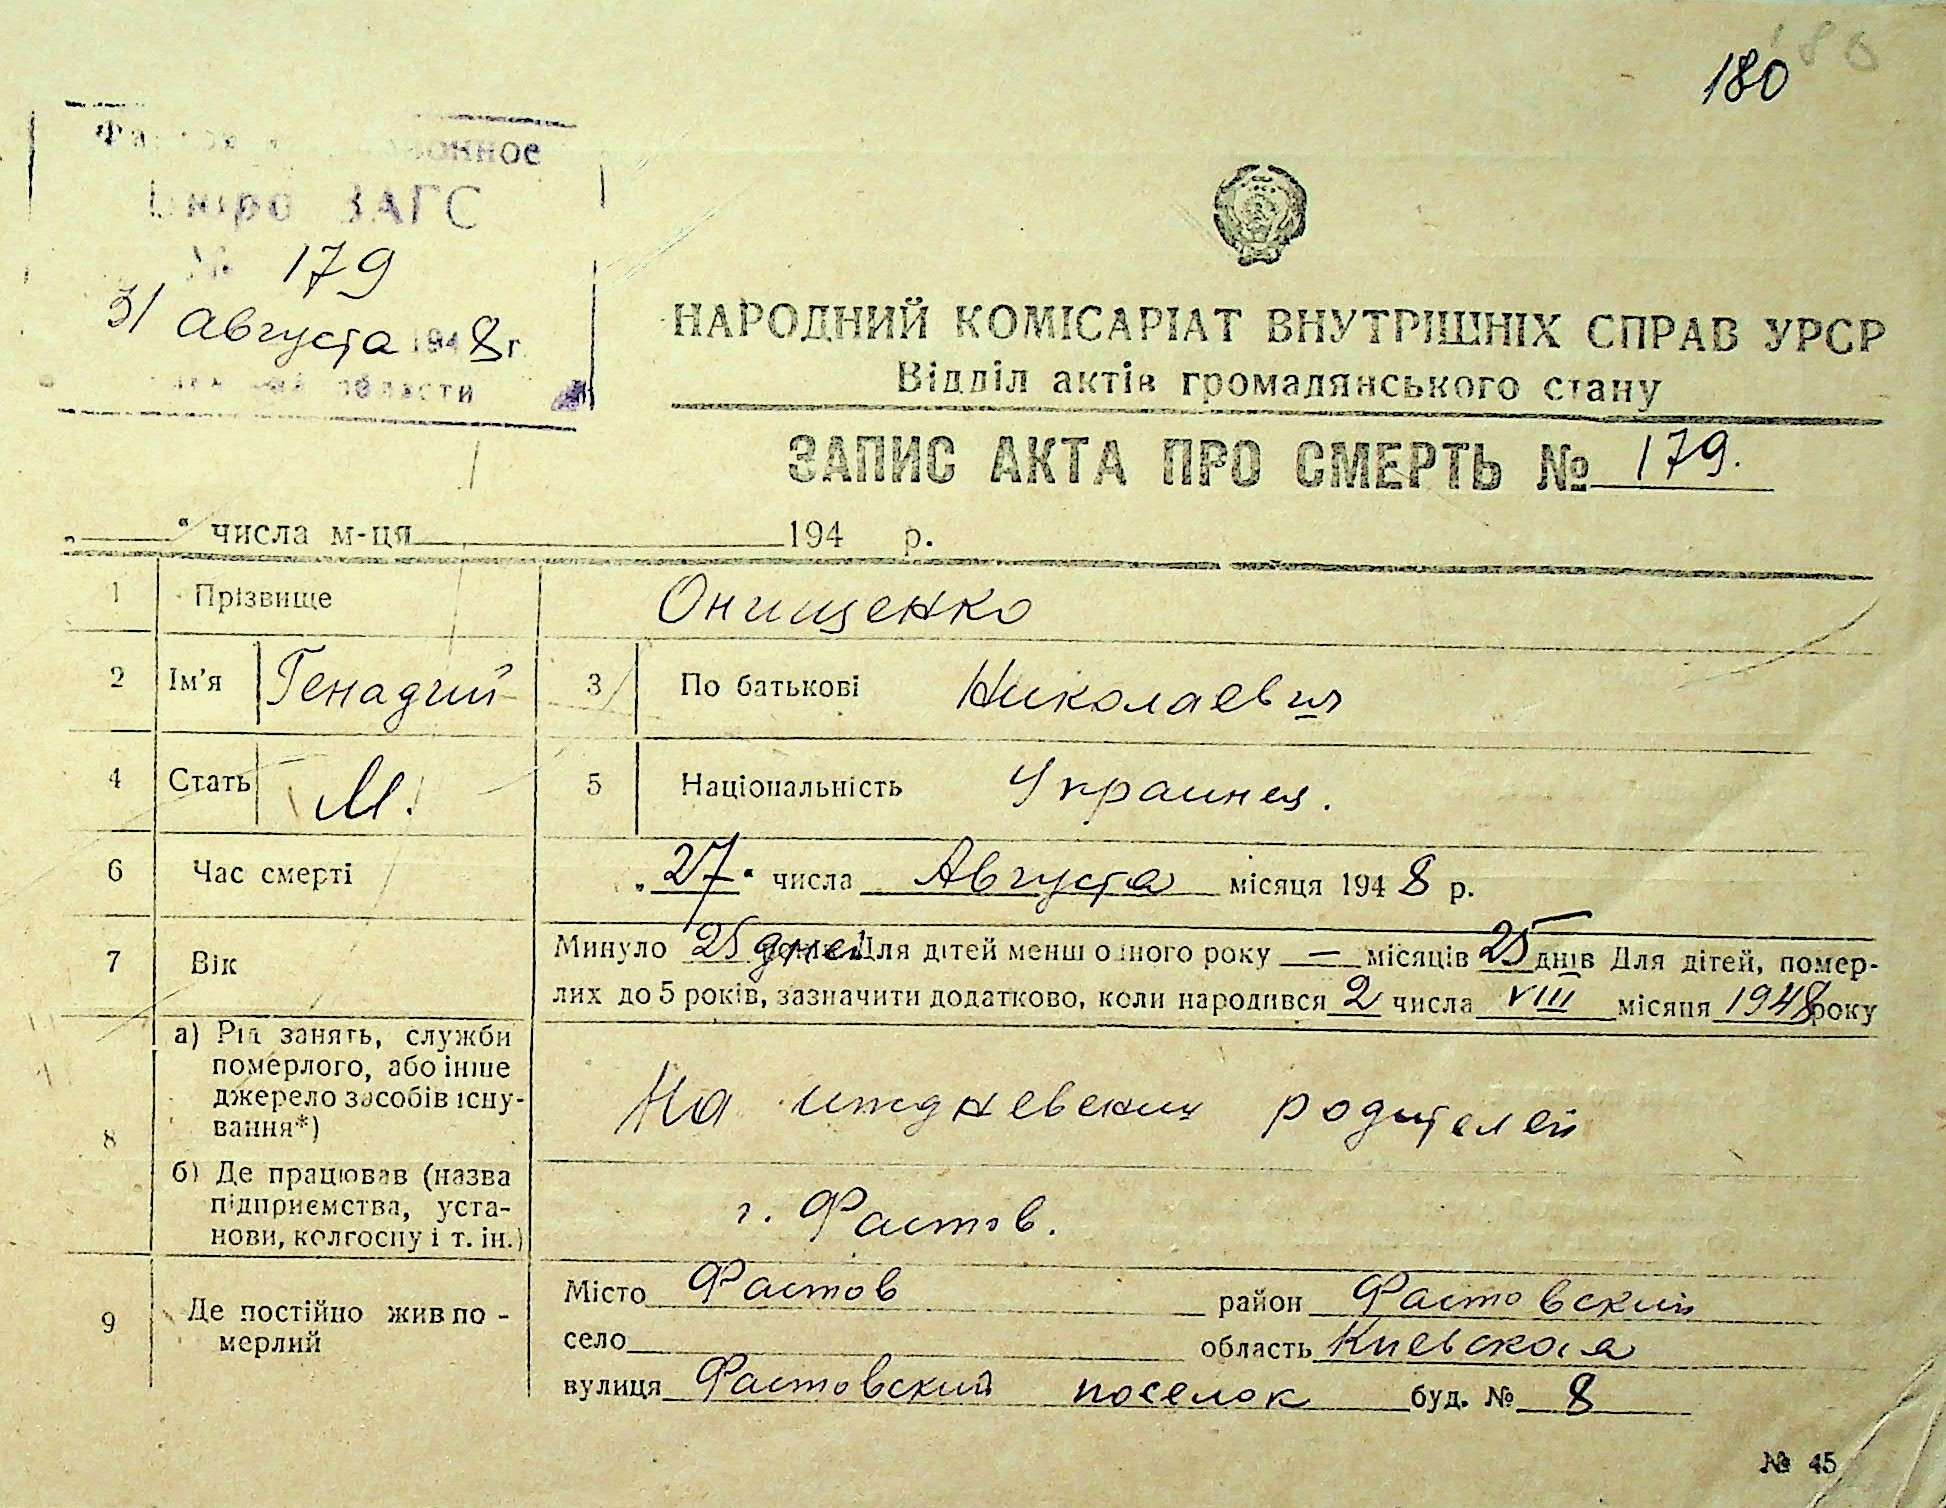 180
180
Бюро ЗАГС
№ 179
31 августа 1948 г.
области
НАРОДНИЙ КОМІСАРІАТ ВНУТРІШНІХ СПРАВ УРСР
Відділ актів громадянського стану
ЗАПИС АКТА ПРО СМЕРТЬ № 179.
„ “ числа м-ця 194 р.
1 Прізвище Онищенко
2 Ім'я Генадий 3 По батькові Николаевич
4 Стать М. 5 Національність Украинец.
6 Час смерті „27“ числа Августа місяця 1948 р.
7 Вік Минуло 25 дней Для дітей менш одного року — місяців 25 днів Для дітей, помер-
лих до 5 років, зазначити додатково, коли народився 2 числа VIII місяця 1948 року
8 а) Рід занять, служби
померлого, або інше
джерело засобів існу-
вання*)
На иждневении родителей
б) Де працював (назва
підприємства, уста-
нови, колгоспу і т. ін.)
г. Фастов.
9 Де постійно жив по-
мерлий
Місто Фастов район Фастовский
село область Киевская
вулиця Фастовский поселок буд. № 8
№ 45